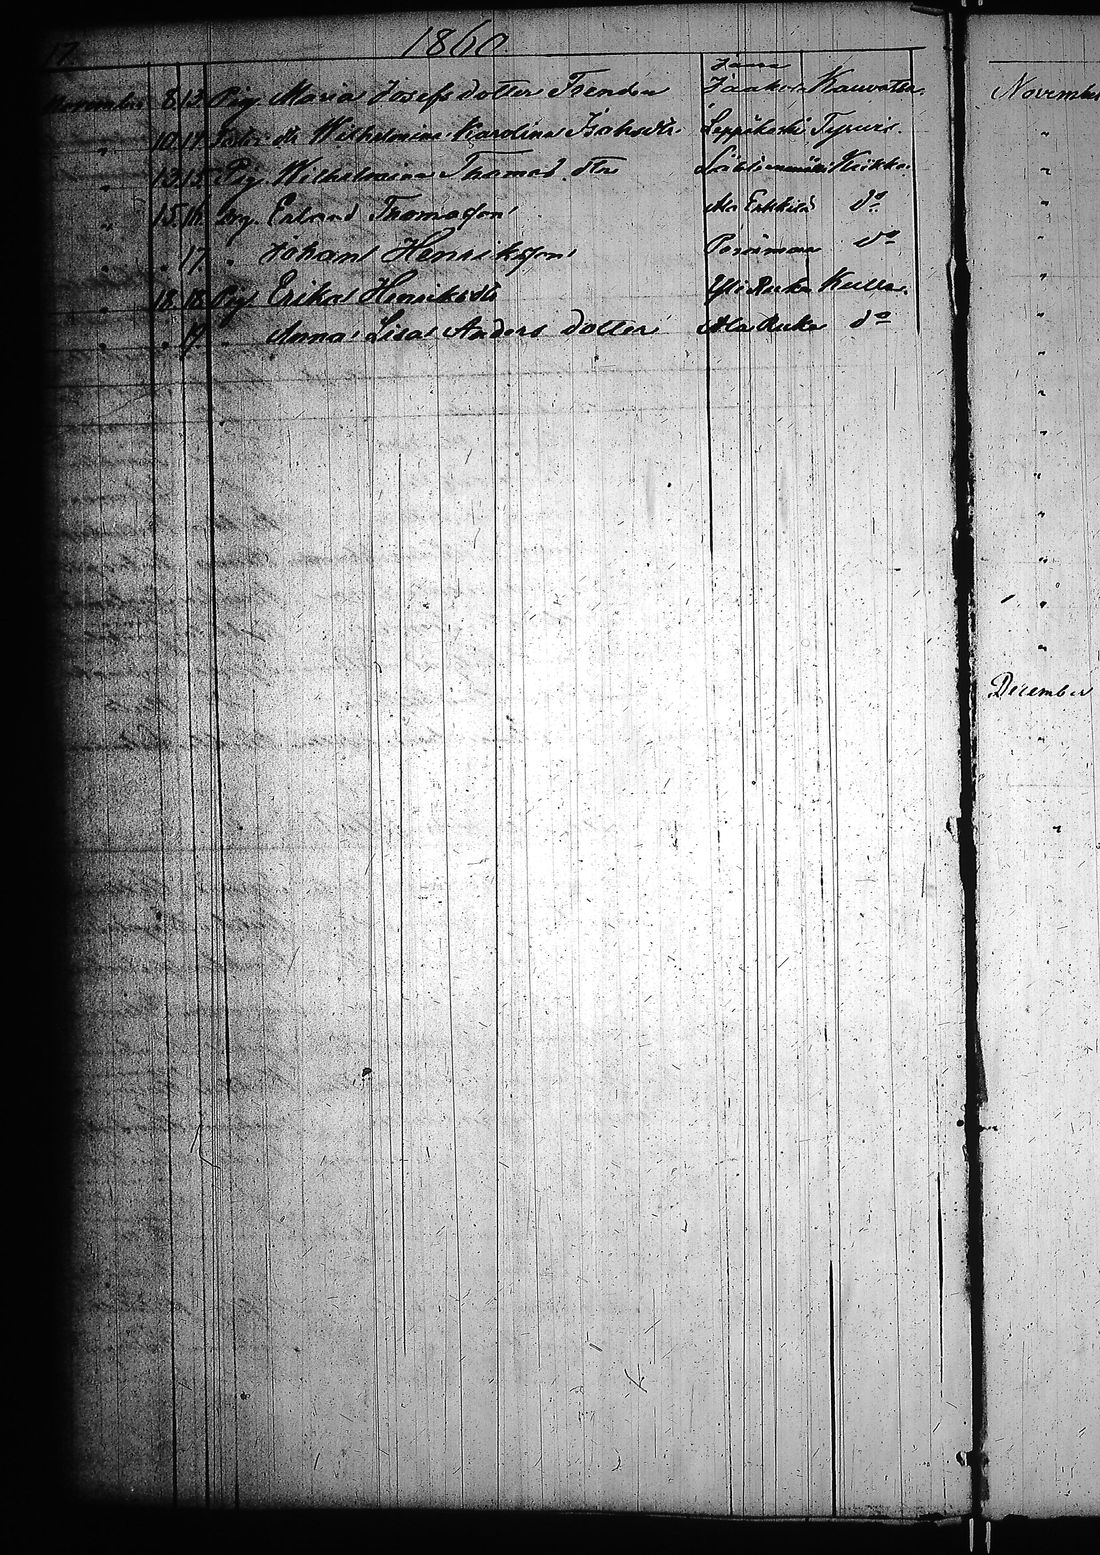 17. 1860.
November 8 13 Pig. Maria Josefs dotter Trenden Jaakola Kauvatsa
" 10 14 dr Wilhelmina Karolina Isaksdr Leppäkoski Tyrvis.
" 13 15 Pig. Wilhelmina Thomas dtr Keikko.
" 15. 16. Dreng. Erland Thomasson Ala Erkkilä do
" . 17. " Johan Henriksson do
" 18. 18. Pig. Erika Henriksdr Yli Ruka Kulla.
" . 19. " Anna Lisa Anders dotter Ala Ruka do
November
"
"
"
"
"
"
"
"
"
"
"
"
"
"
December
"
"